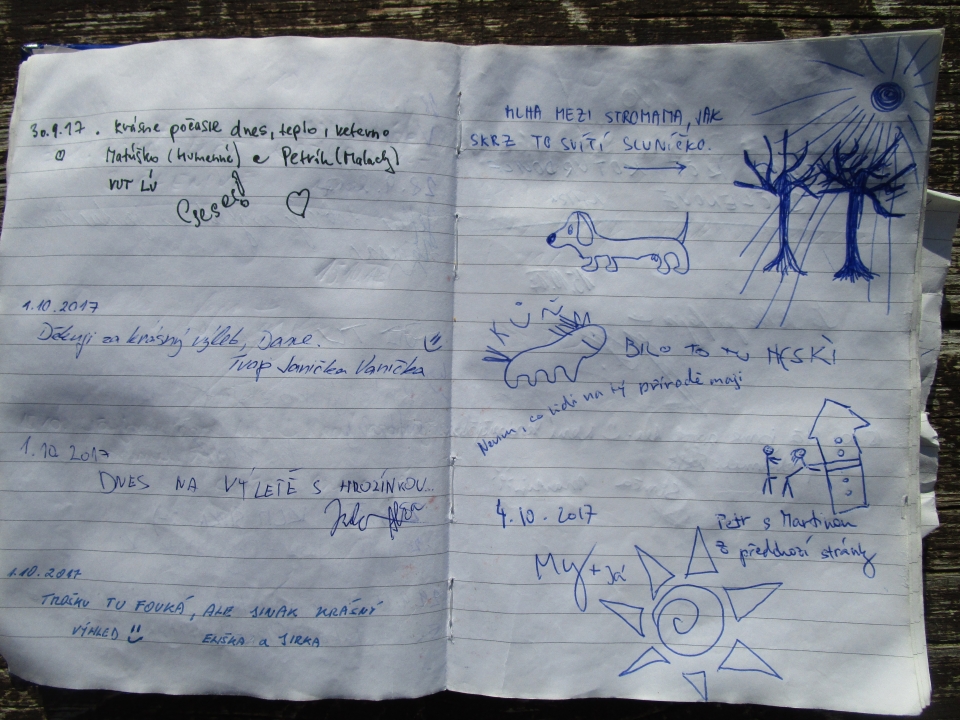 30.9.17. krásne počasie dnes, teplo, veterno
Matúško (Humenné) a Petrík (Malacky)
VUT
1.10.2017
Děkuji za krásný výlet, Dane.
Tvoje Janička Vanička
1.10 2017
DNES NA VÝLETĚ S HROZÍNKOU...
1.10.2017
TROŠKU TU FOUKÁ, ALE JINAK KRÁSNÝ
VÝHLED
ELIŠKA a JIRKA
MLHA MEZI STROMAMA, JAK
SKRZ TO SVÍTÍ SLUNÍČKO.
KŮŇ
BILO TO TU HESKÍ
Nevim, co lidi na tý přírodě mají
4.10.2017
Petr s Martinou
z předchozí stránky
My + Já